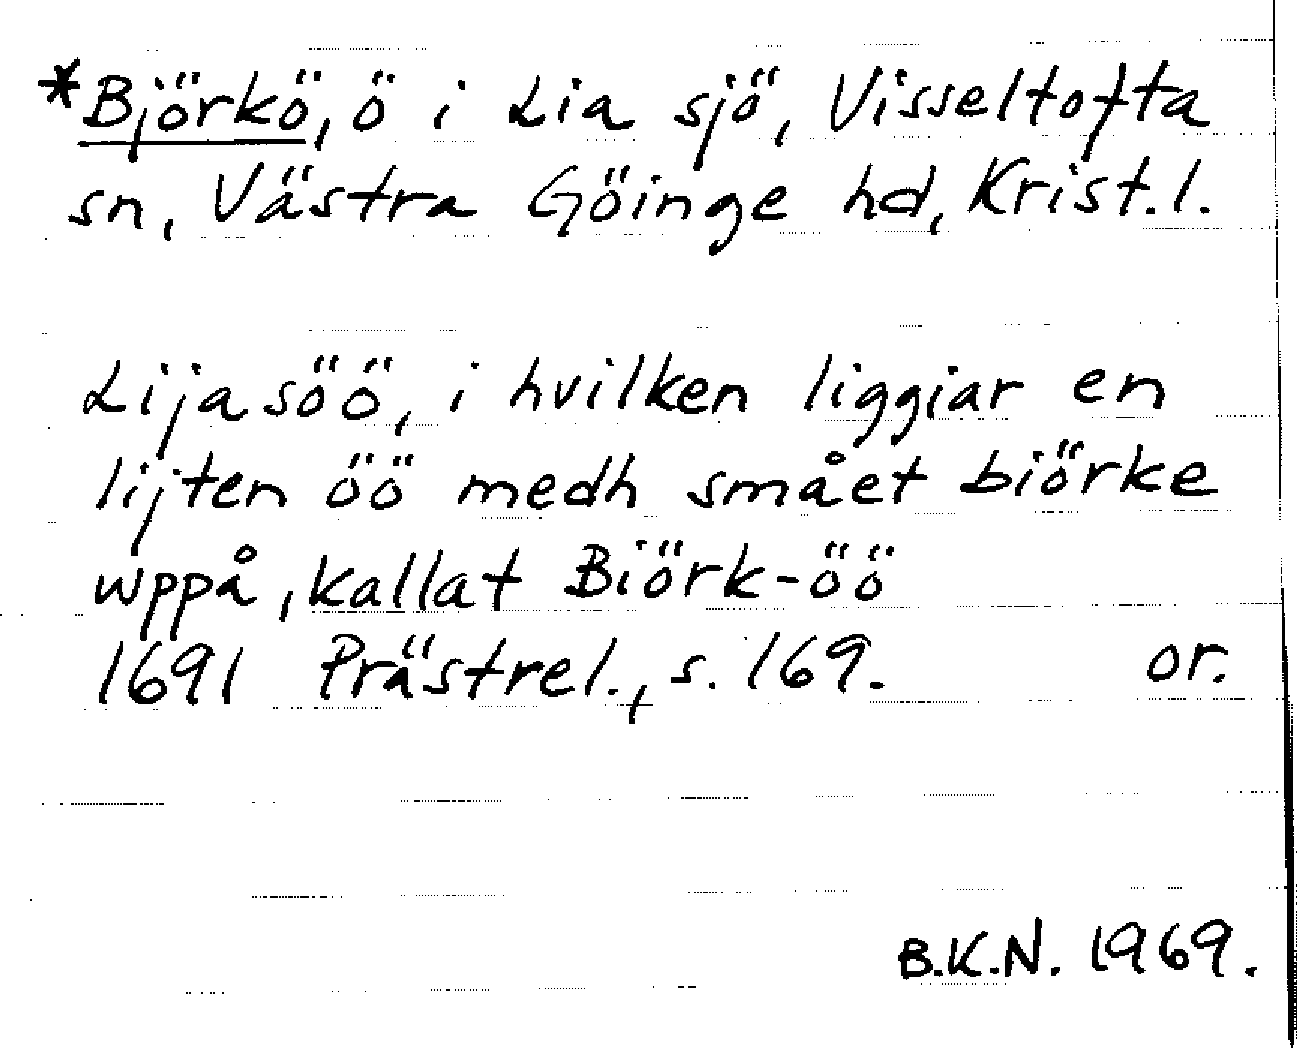 *Björkö, ö i Lia sjö, Visseltofta
sn, Västra Göinge hd, Krist.l.
Lijasöö, i hvilken liggiar en
lijten öö medh smået biörke
wppå, kallat Biörk-öö
1691 Prästrel., s. 169. or.
B.K.N. 1969.